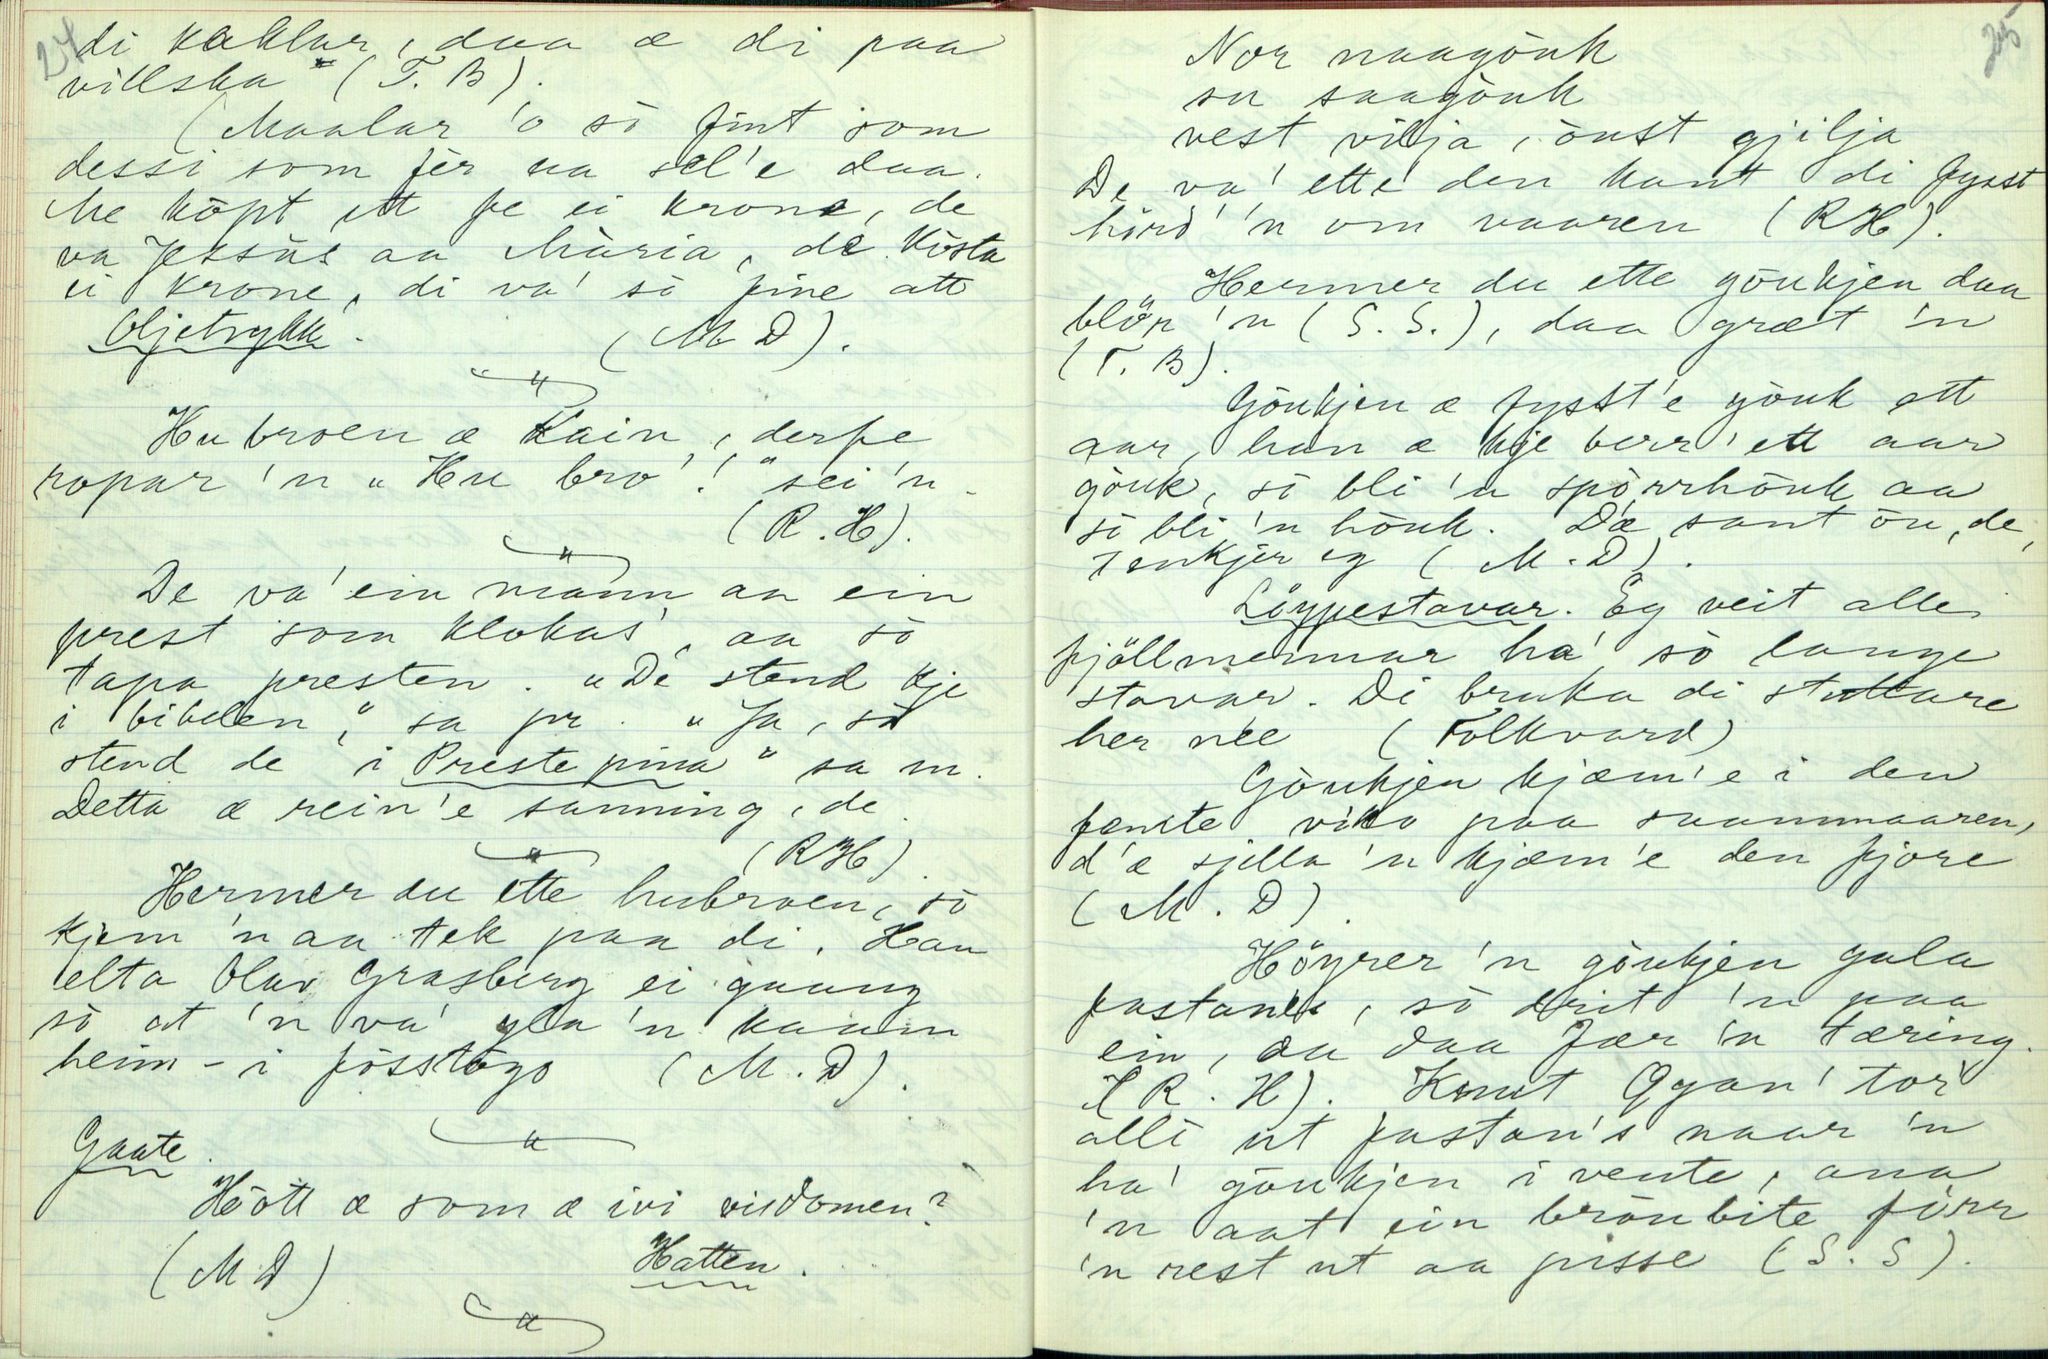 24
di kaklar, daa æ di paa
villska" (T. B).
(Maalar 'o sò fint som
dessi som fèr aa sel'e daa.
Me köpt ett fe ei krone, de
va Jessús aa Mària, de kòsta
ei krone, di va' sò fine att
Oljetrykk. (M D).
Hubroen æ Kain, derfe
ropar 'n „Hu bro'!" sei 'n.
(R. H).
De va' ein mann aa ein
prest som klokas', aa sò
tapa presten. „De stend kje
i bibelen," sa pr. „Ja, sò
stend de i Preste pina" sa m.
Detta æ rein'e sanning, de.
(RH).
Hermer du ette hubroen, sò
kjem 'n aa tek paa di. Han
elta Olav Grasberg ei gaang
sò at 'n va' gla 'n kaam
heim - i fòsstògo (M. D).
Gaate.
Hòtt æ som æ ivi visdomen?
(M D) Hatten.
25
Nor naagòuk
su saagòuk
vest vilja, òust gjilja
De va' ette den kant di fysst
hörd' 'n om vaaren (RH).
Hermer du ette gòukjen daa
blör 'n (S. S.), daa græt 'n
(T. B).
Gòukjen æ fysst'e gòuk ett
aar, han æ kje berr' ett aar
gòuk, sò bli 'n spòrrhòuk aa
sò bli 'n hòuk. Dæ sant òu, de,
tenkjer eg (M. D).
Löypestavar. Eg veit alle
fjöllmennar ha' sò lange
stavar. Di bruka di stuttare
her née (Folkvard)
Gòukjen kjæm'e i den
femte viko paa suammaaren,
d'æ sjella 'n kjæm'e den fjore
(M. D).
Höyrer 'n gòukjen gala
fastan's, sò drit 'n paa
ein, aa daa fær 'n tæring.
(R. H). Knut Øygan' tor'
alli ut fastan's naar 'n
ha' gòukjen i vente, ana
'n aat ein bròubite förr
'n rest ut aa pisse (S. S).